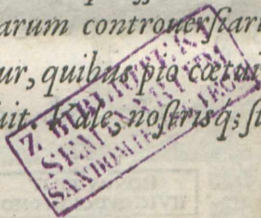 arum controuerſiari
ur, quibus pio cœtui
uit. Vale, noſtrisq; ſt
Z BIBLIOTEKI
SEMINARIUM
SANDOMIERSKIEGO